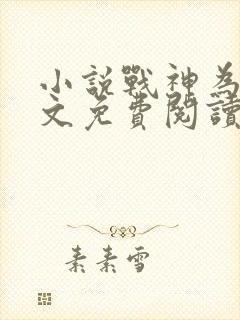 小說戰神為
文免費閱讀
素素雪